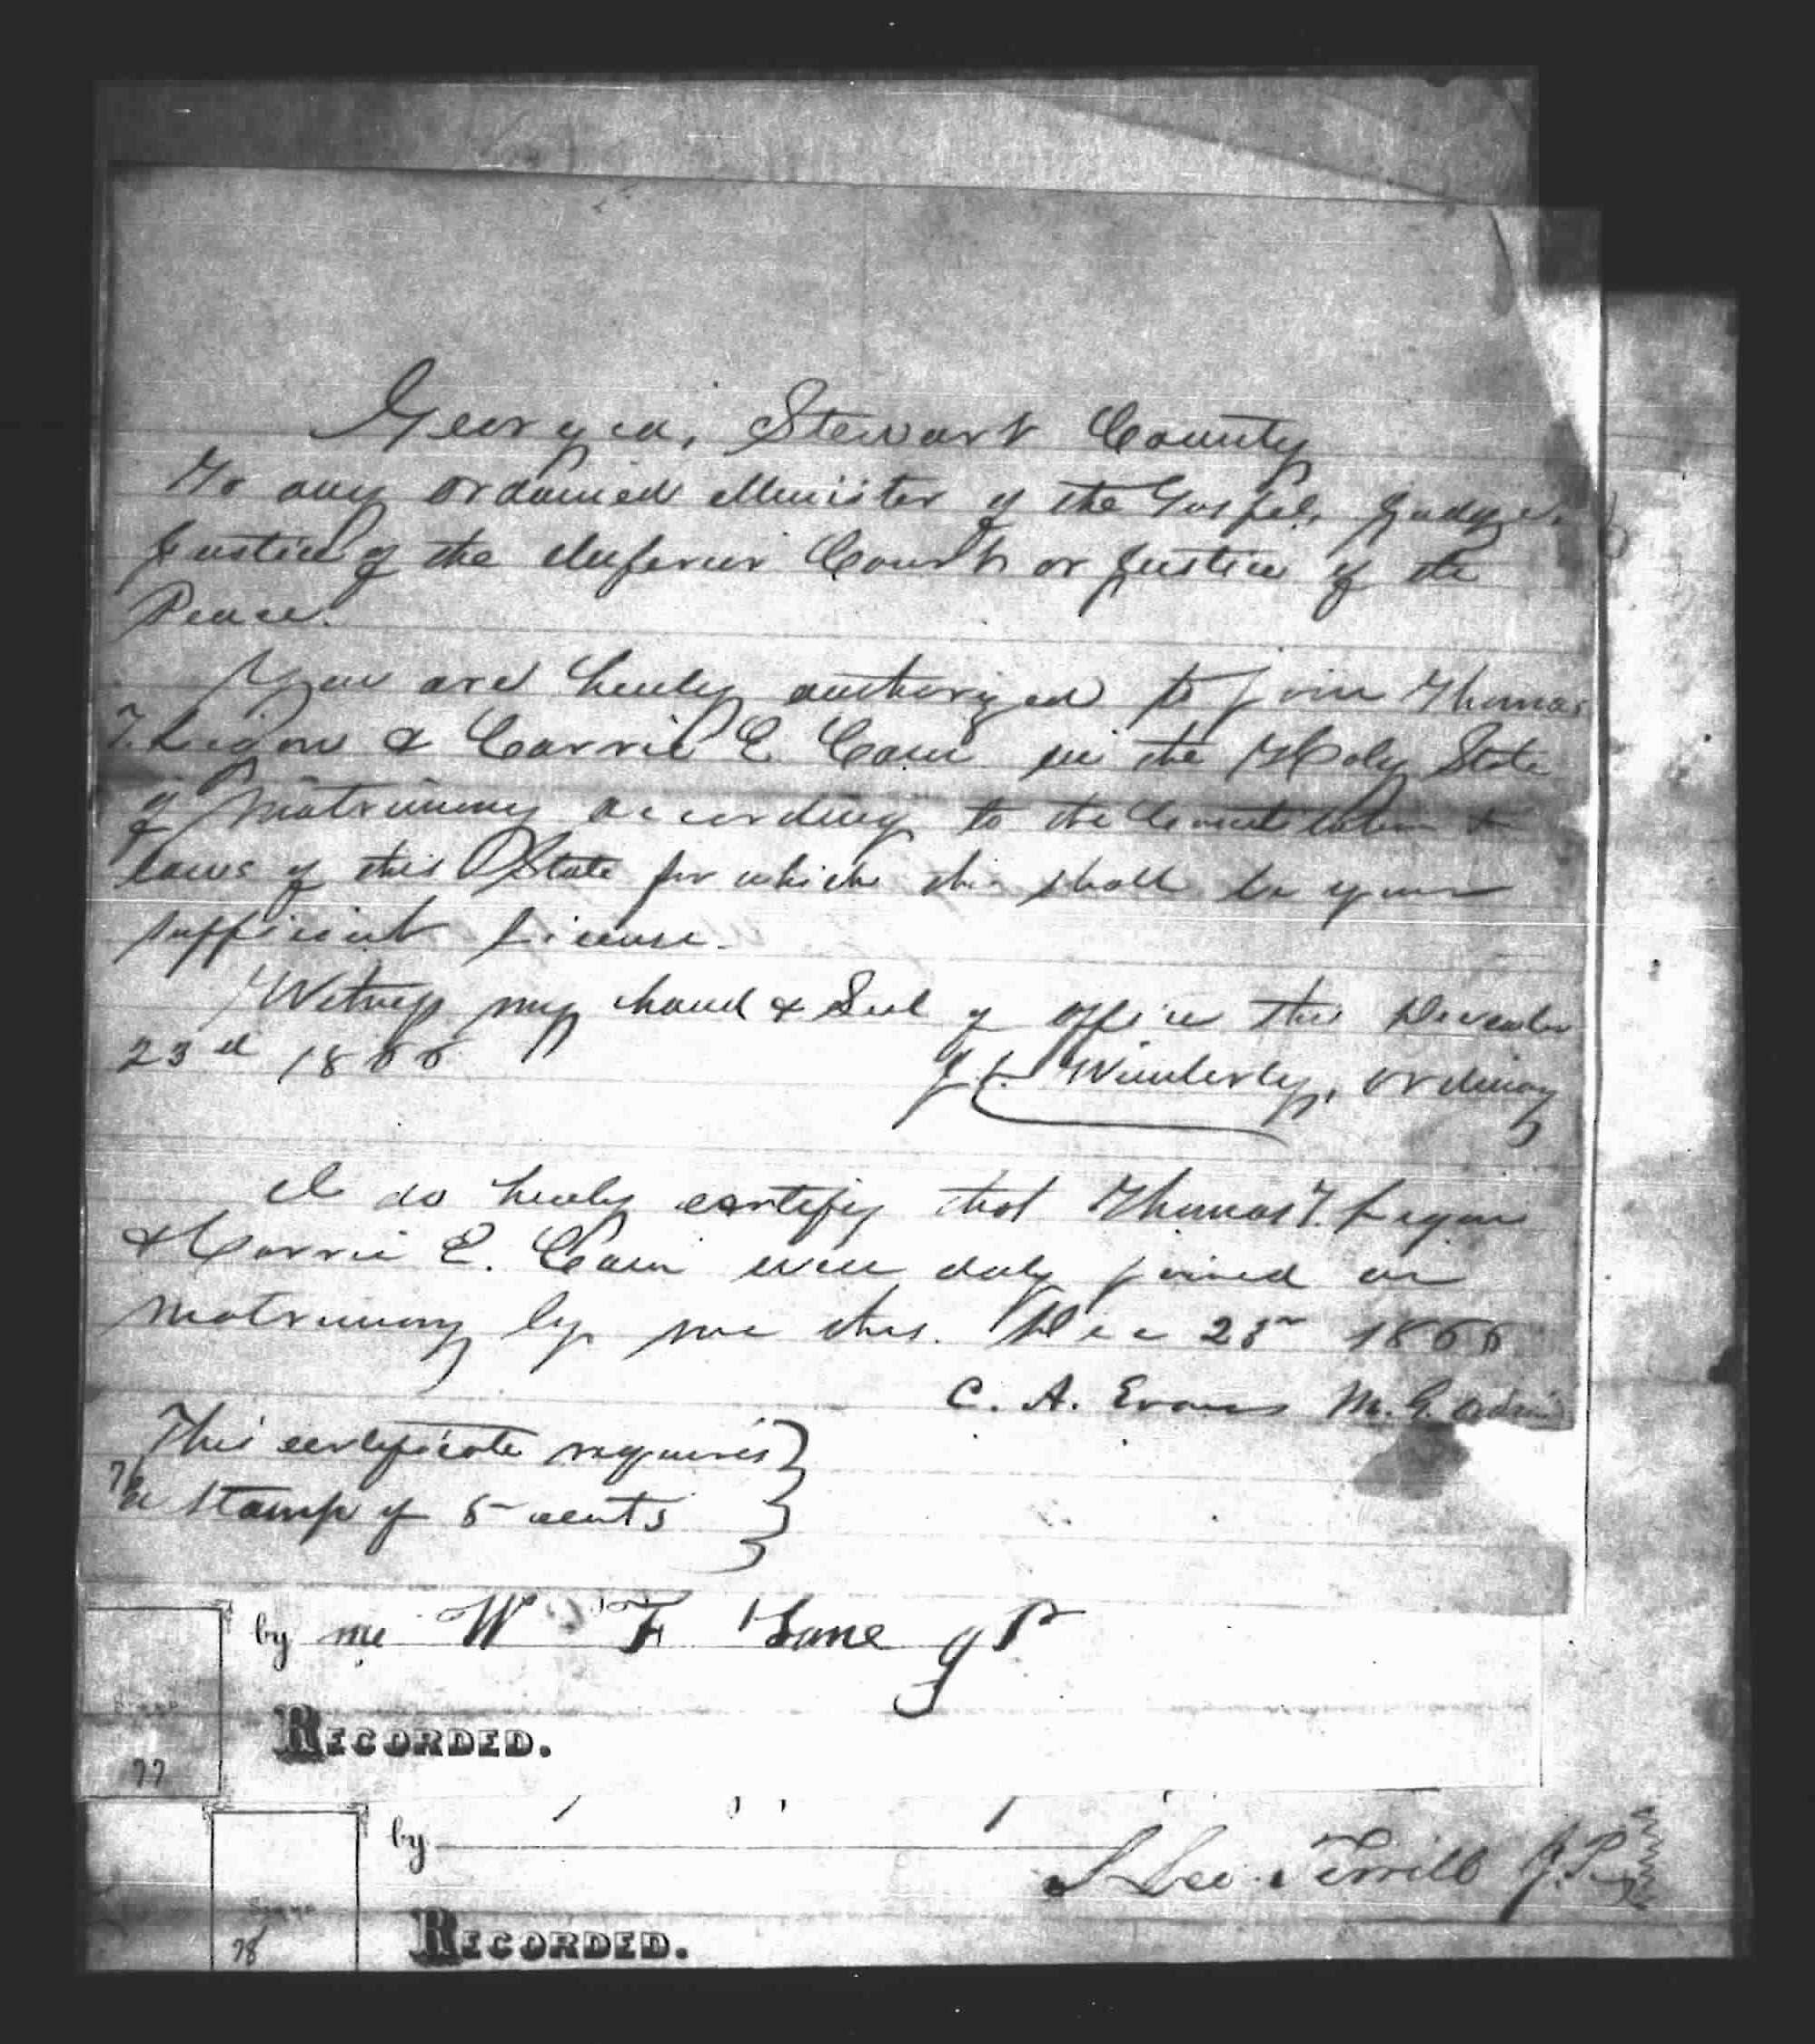 Georgia, Stewart County
To any ordained Minister of the Gospel, Judge,
Justice of the Inferior Court or Justice of the
Peace.
You are hereby authorized to join Thomas
T. Ligon & Carrie E. Cain in the Holy State
of Matrimony according to the Constitution &
laws of this State for which this shall be your
sufficient license.
Witness my hand & Seal of office this December
23rd 1866
J. L. Wimberly, Ordinary
I do hereby certify that Thomas T. Ligon
& Carrie E. Cain were duly joined in
matrimony by me this. Dec 23rd 1866
C. A. Evans M. G.
This certificate requires
a stamp of 5 cents
76
by me W F Lane JP
Stamp
77
RECORDED.
by
S Lee Terrill J.P.
Stamp
78
RECORDED.